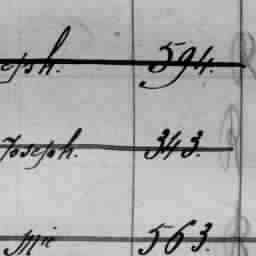 eph. 594.
Joseph. 343.
mie 563.